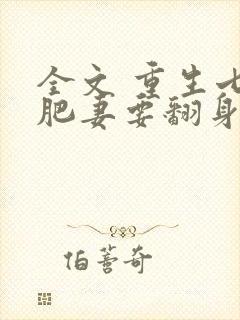 全文 重生七
肥妻要翻身
伯蓍奇